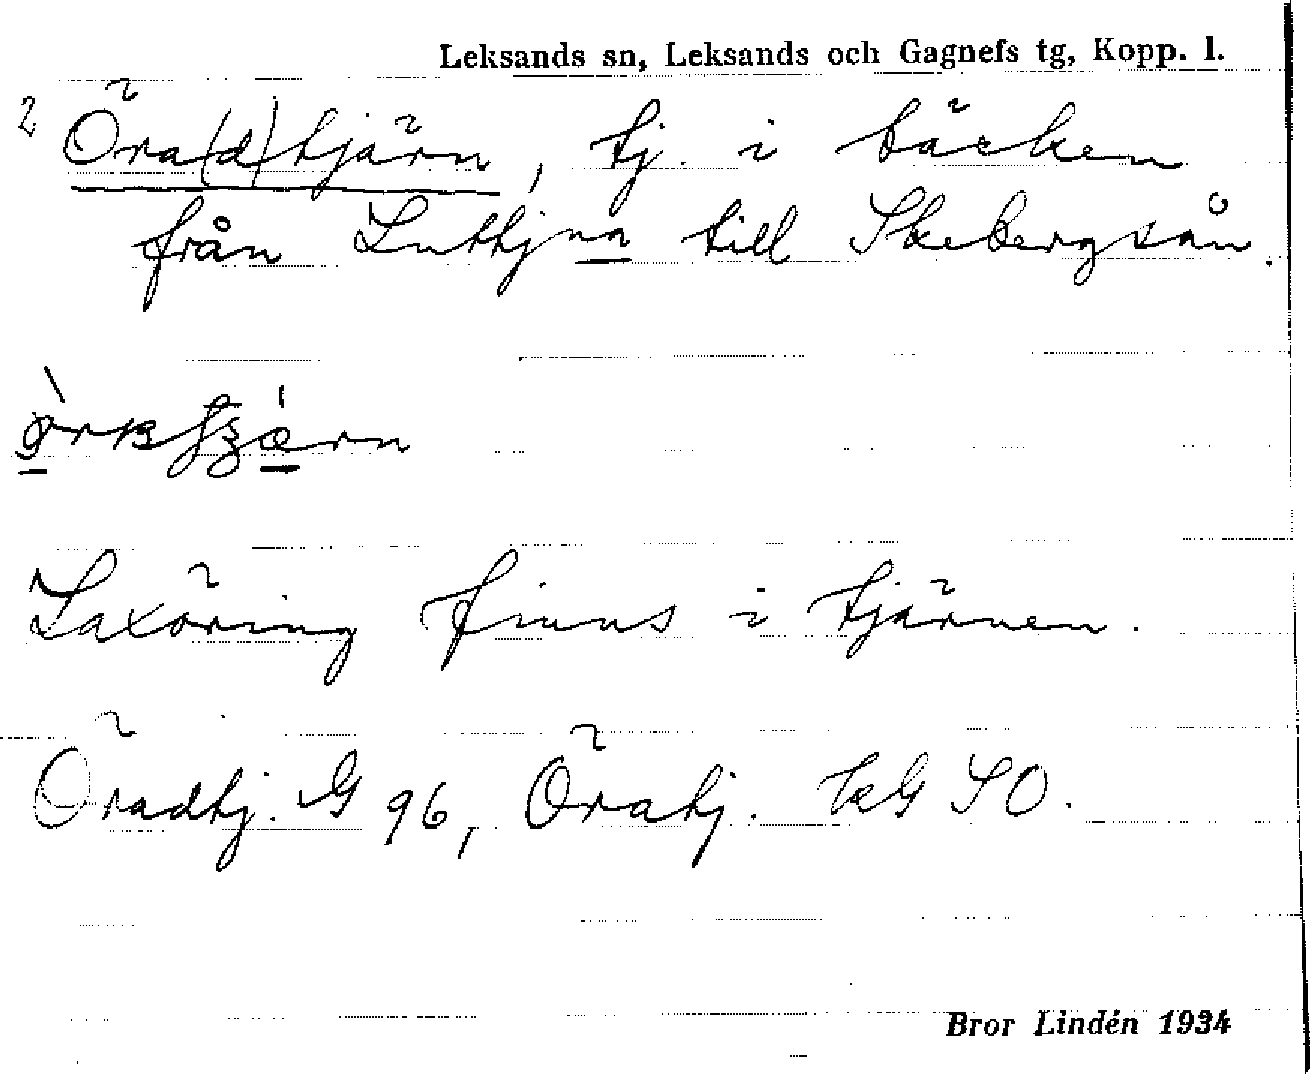 Leksands sn, Leksands och Gagnefs tg, Kopp. l.
2 Öra(d)tjärn, tj. i bäcken
från Luttjna till Skebergsån.
Laxöring finns i tjärnen.
Öradtj. G 96, Öratj. kG SO.
Bror Lindén 1934